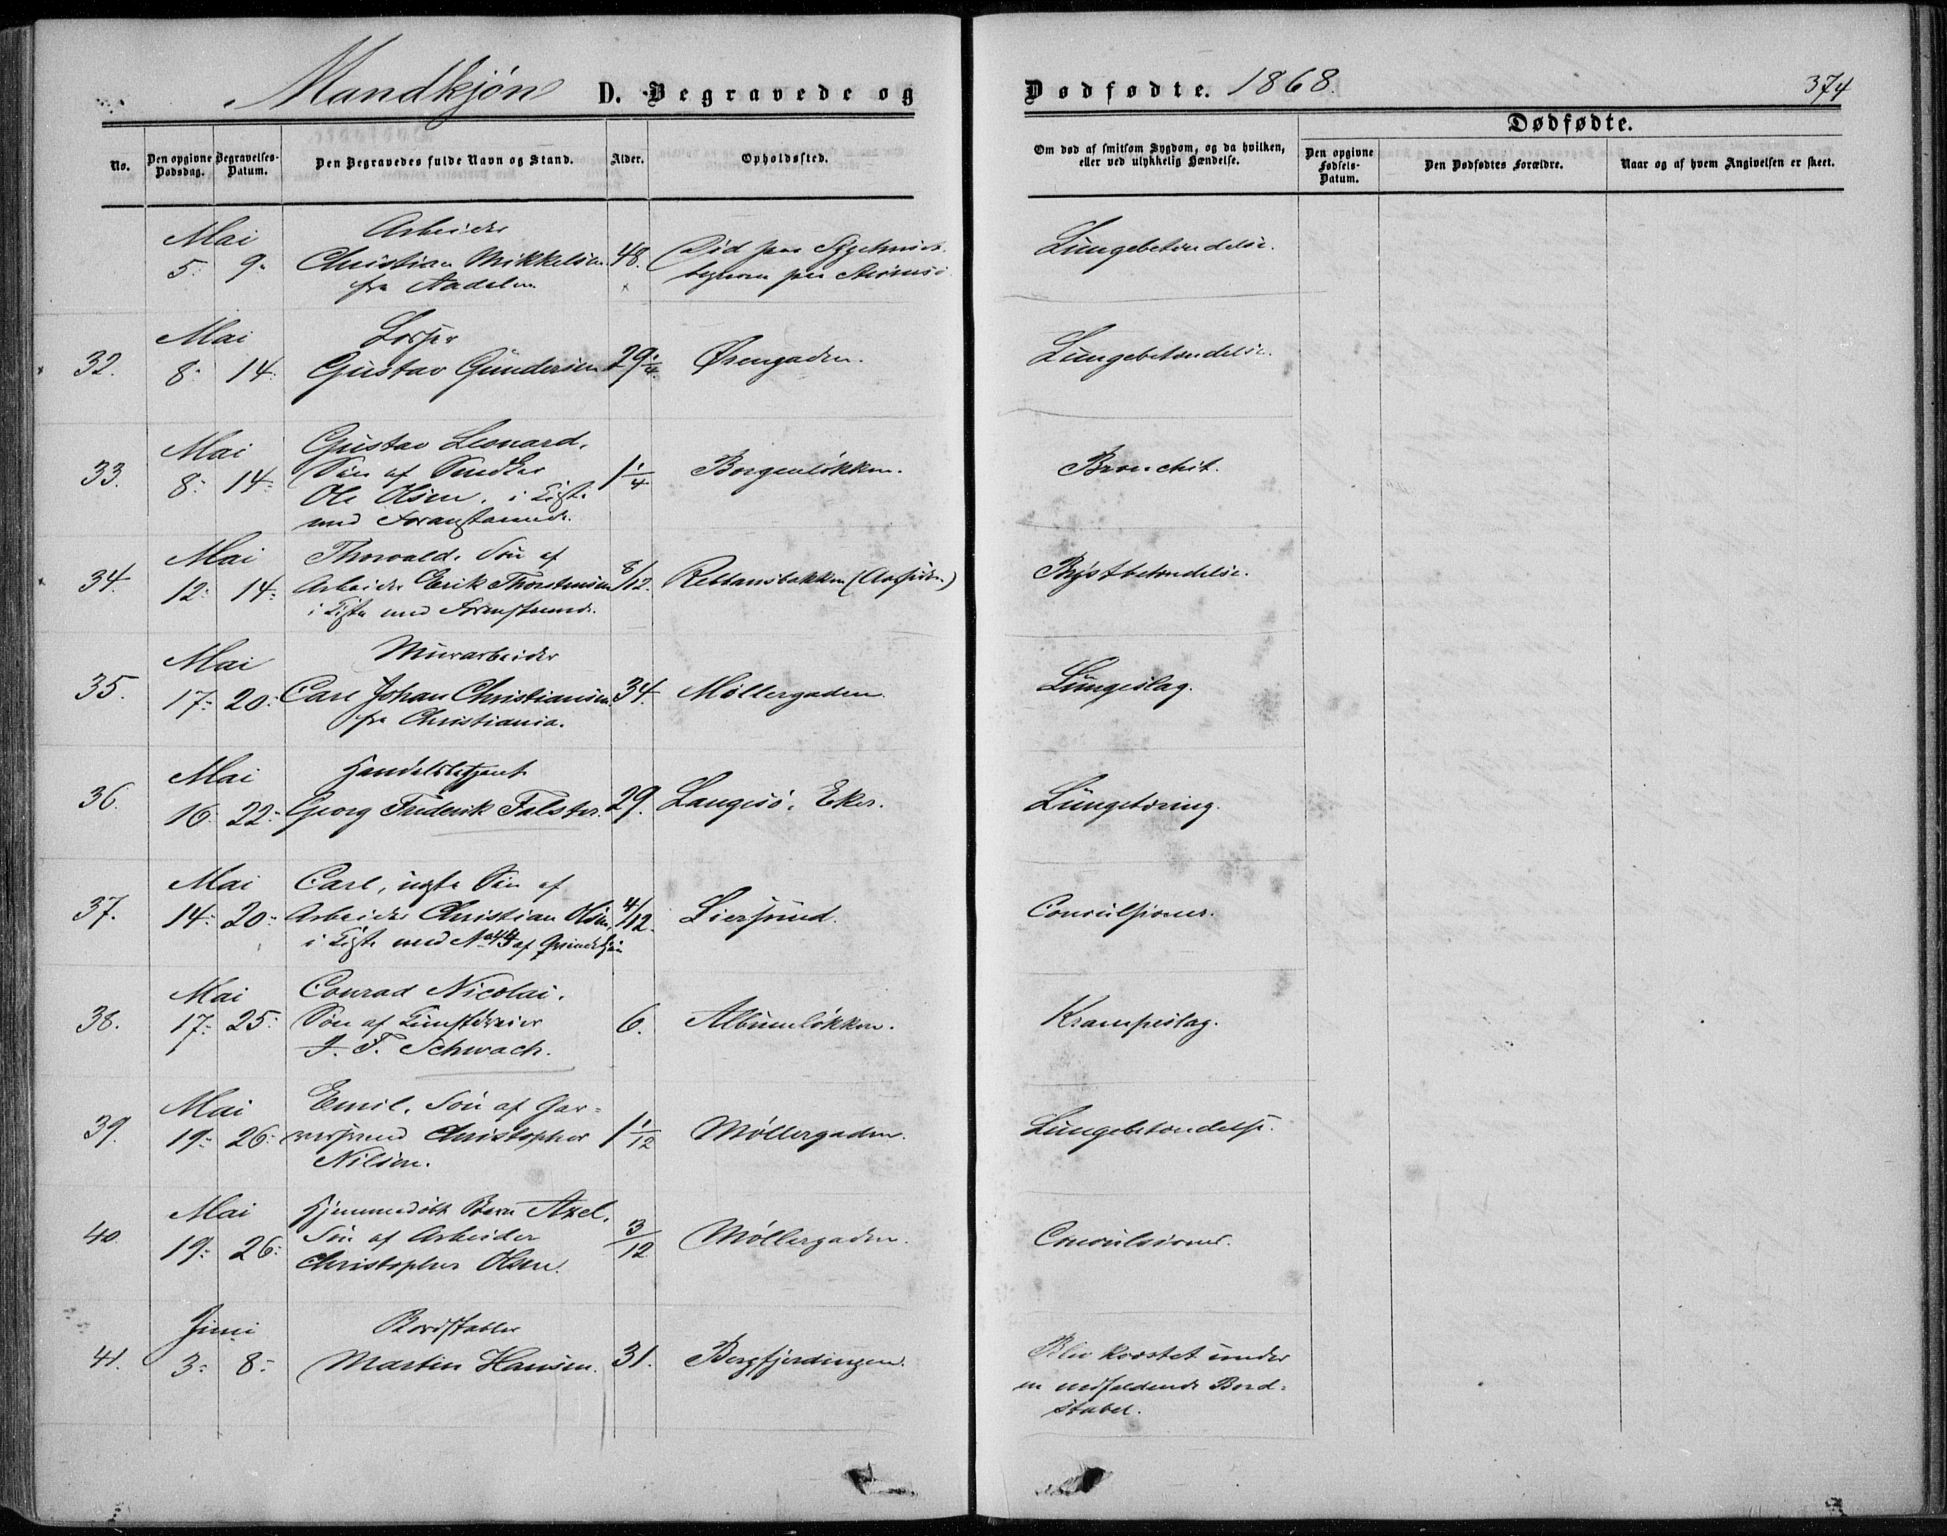 Mandkjøn D. Begravede og
Dødfødte. 1868. 374
No.
Den opgivne Dødsdag.
Begravelses-Datum.
Den Begravedes fulde Navn og Stand.
Alder.
Opholdssted.
Om død af smitsom Sygdom, og da hvilken,
eller ved ulykkelig Hændelse.
Dødfødte.
Den opgivne Fødsels-Datum.
Den Dødfødtes Forældre.
Naar og af hvem Angivelsen er skeet.
Mai Arbeider
5. 9. Christian Mikkelsen 48. Død paa Lungebetændelse.
fra Aadalen paa Strømsø
Mai
32. 8. 14. Gustav Gundersen 29 1/4. Ørengaden. Lungebetændelse.
Mai Gustav Leonard,
33. 8. 14. Søn af Snedker 1 1/4 Borgenløkken. Bronchit.
Ole Olsen. i Kiste
med Foranstaaende.
Mai Thorvald. Søn af
34. 12. 14. Arbeider Erik Thorstensen 8/12. (Aassiden) Brystbetændelse.
i Kiste med Foranstaaende.
Mai Murarbeider
35. 17. 20. Carl Johan Christiansen 34. Møllergaden. Lungeslag.
fra Christiania.
Mai Handelsbetjent
36. 16. 22. Georg Frederik Falsten. 29. Langesø. Eker. Lungetæring.
Mai Carl, uægte Søn af
37. 14. 20. Arbeider Christian Olsen, 4/12. Liersund. Convulsioner.
i Kiste med No 44 af Qvindekjøn
Mai Conrad Nicolai.
38. 17. 25. Søn af Kunstdreier 6. Albumløkken. Krampeslag.
J. F. Schwach.
Mai Emil. Søn af Gar=
39. 19. 26. versvend Christopher 1 1/12 Møllergaden. Lungebetændelse.
Nilsen.
Mai Hjemmedøbt Barn Axel,
40. 19. 26. Søn af Arbeider 3/12 Møllergaden. Convulsioner.
Christopher Olsen.
Juni Bordstabler
41. 3. 8. Martin Hansen. 31. Bergfjerdingen. Blev knostet under
en nedfaldende Bord=
stabel.